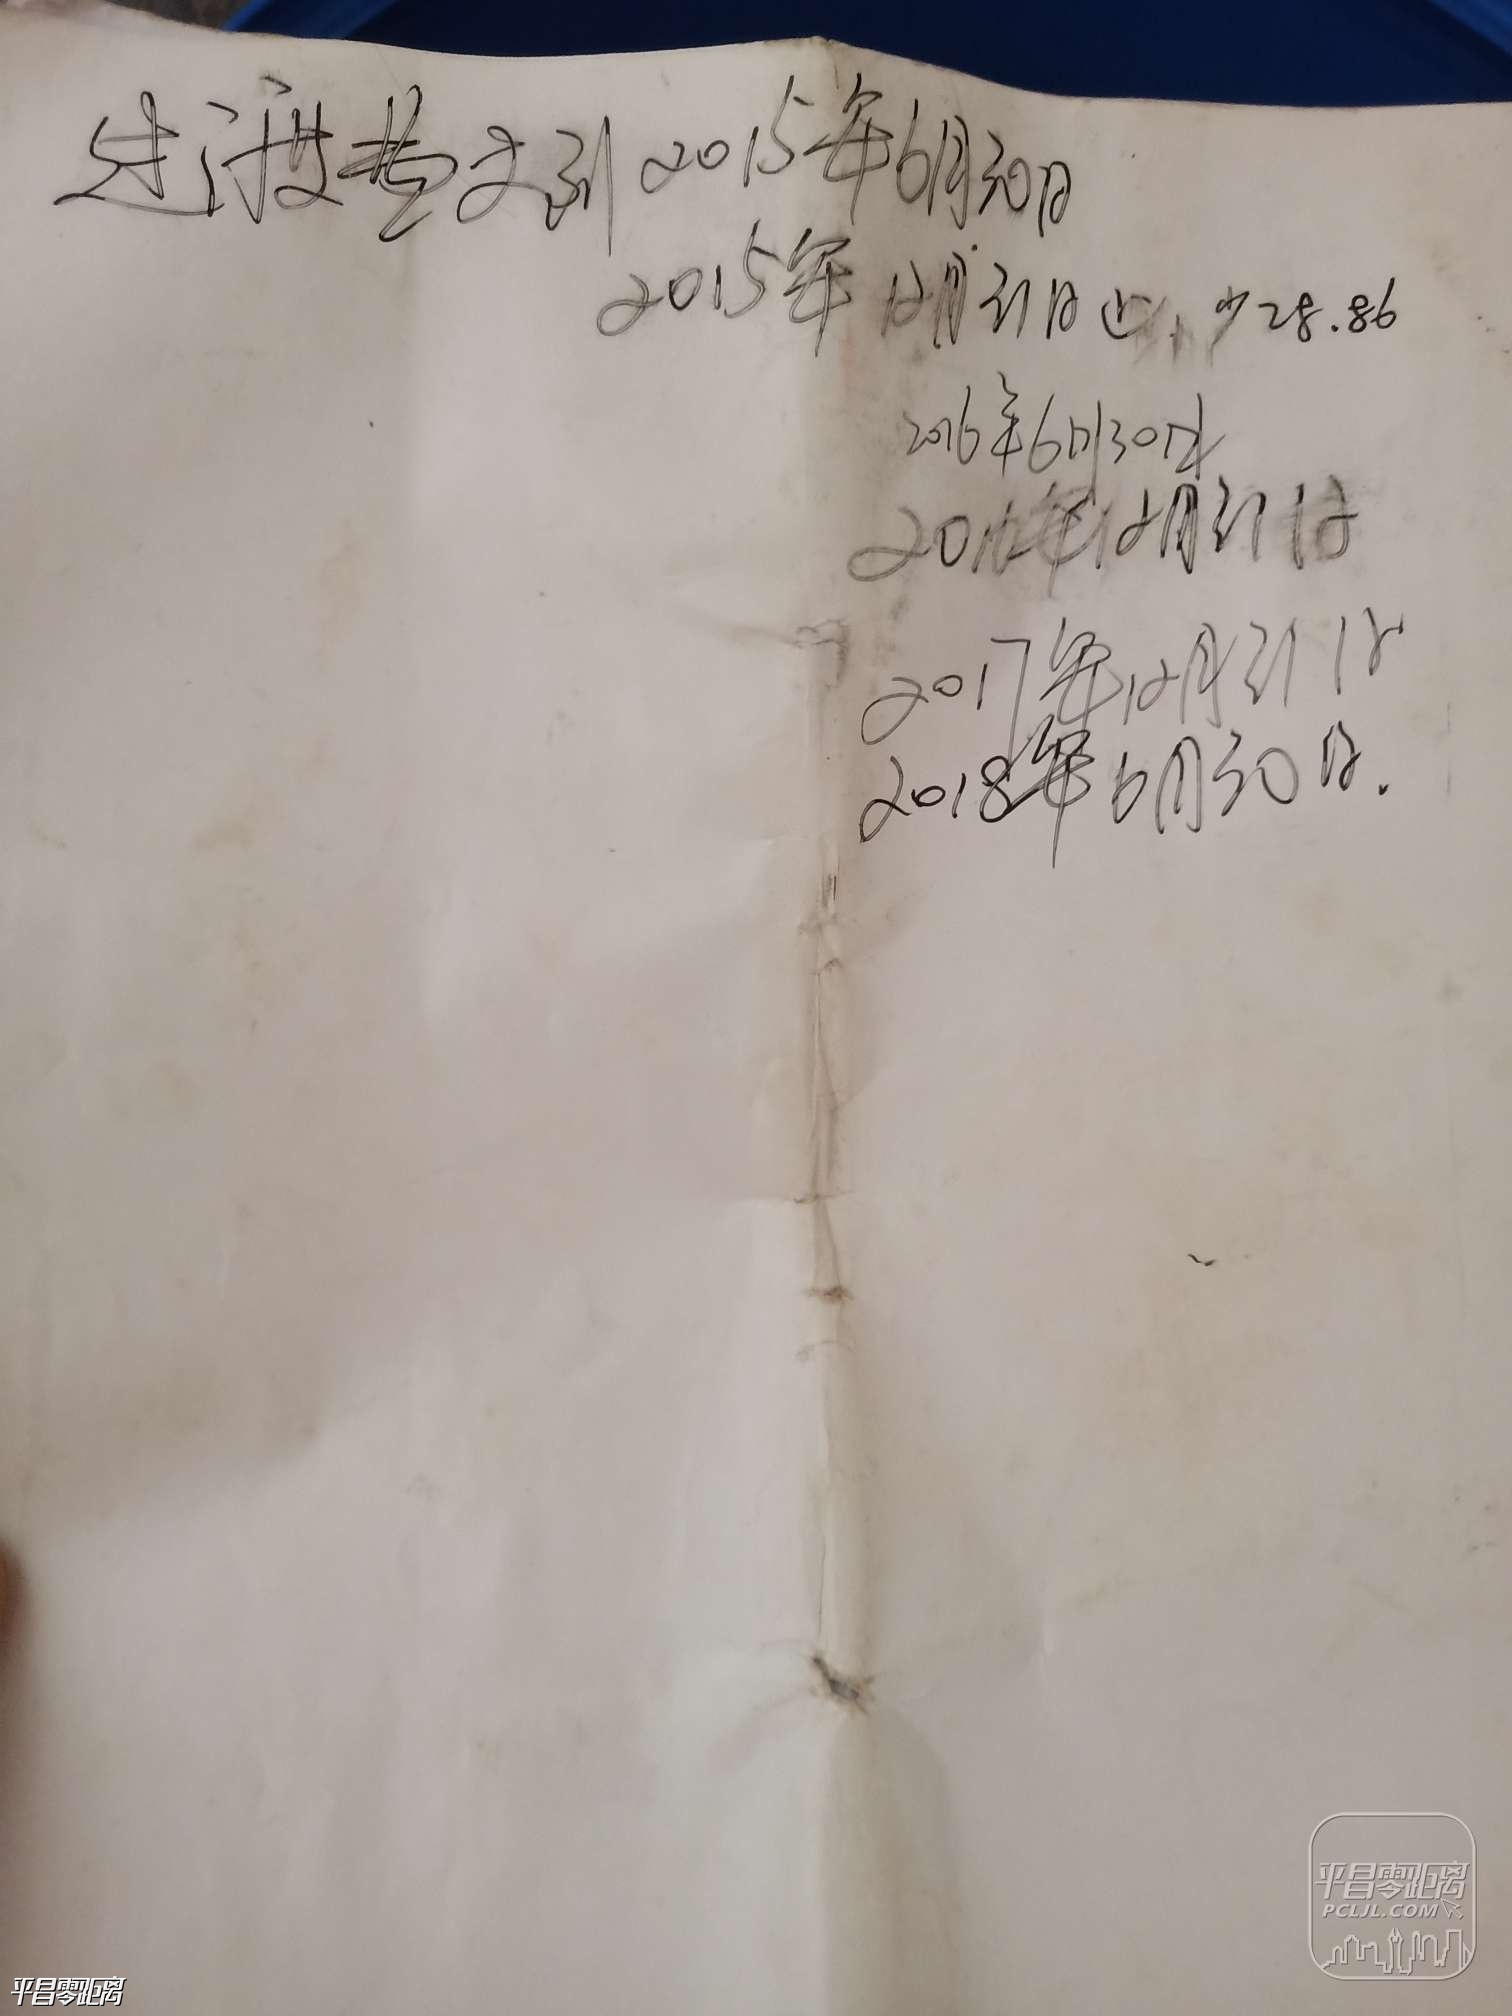 过渡费支到2015年6月30日
2015年12月31日止, 少28.86
2016年6月30日止
2016年12月31日
2017年12月31日
2018年6月30日.
平昌零距离
PCLJL.COM
平昌零距离